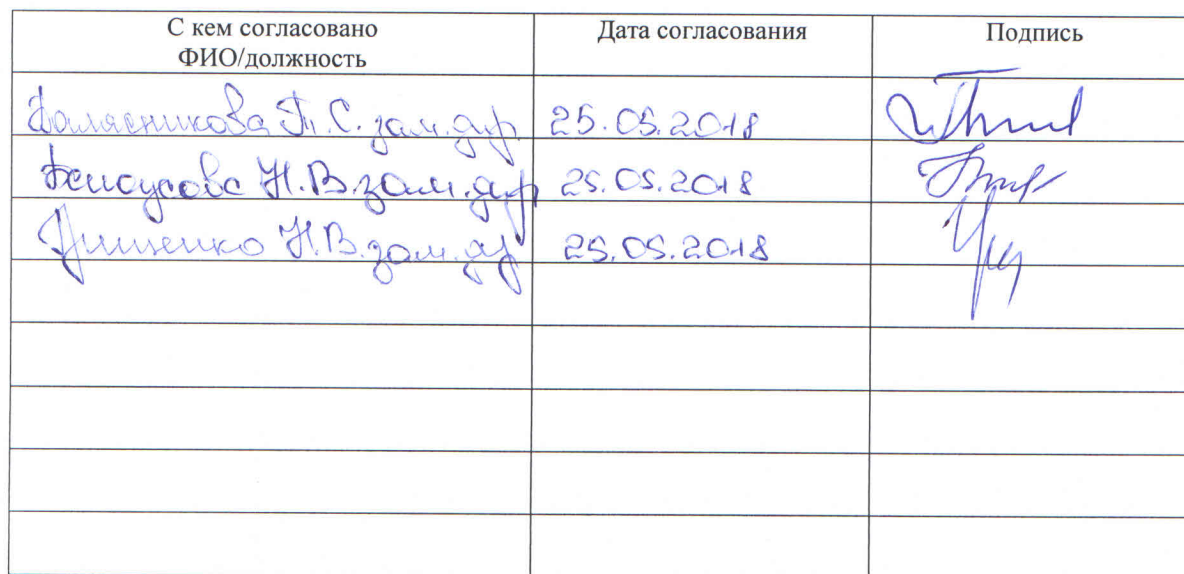 С кем согласовано
ФИО/должность
Дата согласования
Подпись
Балясникова Т.С. зам. дир. 25.05.2018
Белоусова Н.В. зам. дир. 25.05.2018
Н.В. зам. дир. 25.05.2018